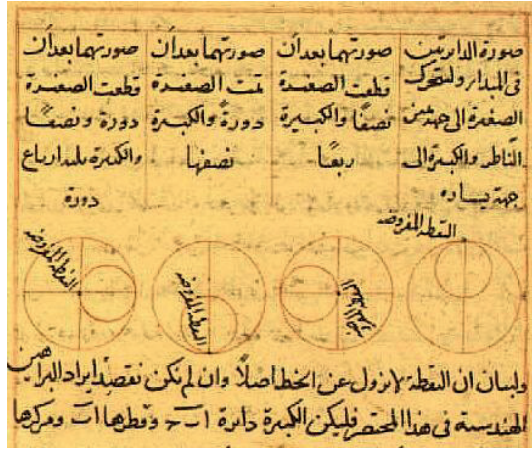 صورة الدايرتين
في المبدا ولتتحرك
الصغيرة الى جهة يمين
الناظر والكبيرة الى
جهة يساره
صورتهما بعد أن
قطعت الصغيرة
نصفًا والكبيرة
ربعًا
صورتهما بعد أن
تمت الصغيرة
دورةً والكبيرة
نصفها
صورتهما بعد أن
قطعت الصغيرة
دورة ونصفًا
والكبيرة ثلثة ارباع
دورة
النقطة المفروضة
النقطة المفروضة
النقطة المفروضة
النقطة المفروضة
ولبيان ان النقطة لا تزول عن الخط اصلاً وان لم نكن نقصد ايراد البراهين
الهندسية في هذا المختصر فليكن الكبيرة دائرة ا ب ج وقطرها ا ب ومركزها